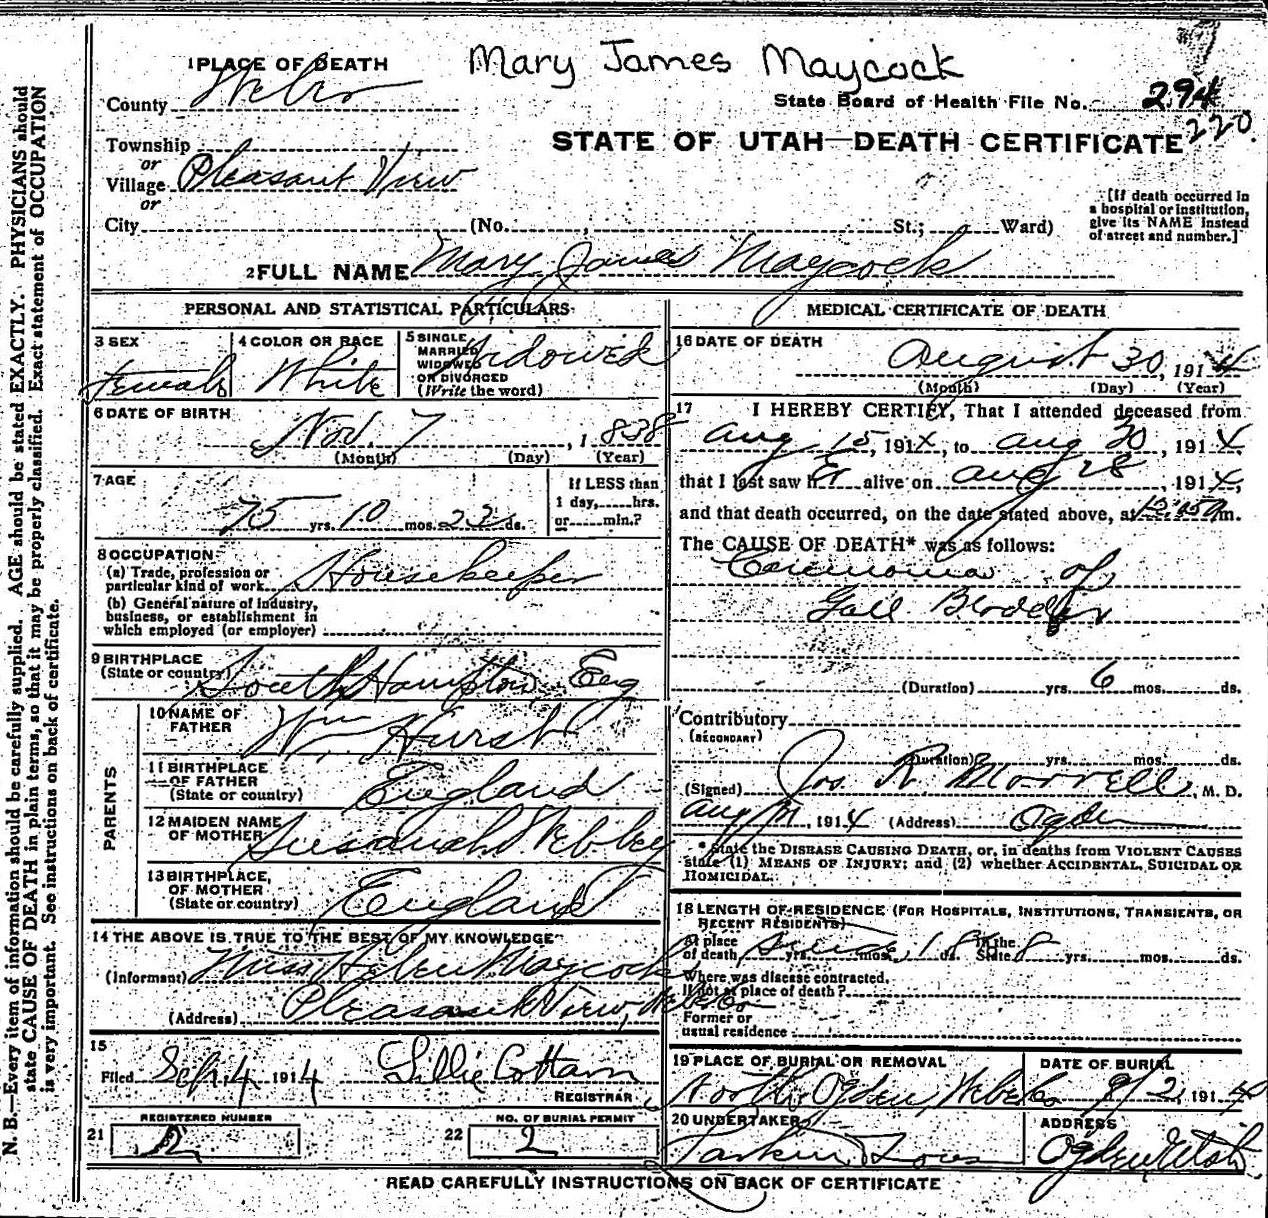 Mary James Maycock
1 PLACE OF DEATH
County Weber
State Board of Health File No. 294
220
STATE OF UTAH—DEATH CERTIFICATE
Township
or
Village Pleasant View
or
City (No. , St.; Ward)
[If death occurred in
a hospital or institution,
give its NAME instead
of street and number.]
2 FULL NAME Mary James Maycock
PERSONAL AND STATISTICAL PARTICULARS
3 SEX Female
4 COLOR OR RACE White
5 SINGLE MARRIED WIDOWED OR DIVORCED (Write the word) Widowed
6 DATE OF BIRTH
Nov. 7, 1838
(Month) (Day) (Year)
7 AGE
75 yrs. 10 mos. 22 ds.
If LESS than
1 day, hrs.
or min.?
8 OCCUPATION
(a) Trade, profession or
particular kind of work Housekeeper
(b) General nature of industry,
business, or establishment in
which employed (or employer)
9 BIRTHPLACE
(State or country) South Hampton, Eng
PARENTS
10 NAME OF
FATHER Wm Hurst
11 BIRTHPLACE
OF FATHER
(State or country) England
12 MAIDEN NAME
OF MOTHER Susanah Webbey
13 BIRTHPLACE,
OF MOTHER
(State or country) England
14 THE ABOVE IS TRUE TO THE BEST OF MY KNOWLEDGE
(Informant) Miss Helen Maycock
(Address) Pleasant View, Weber Co
15
Filed Sept 4 1914 Lillie Cottam
REGISTRAR
REGISTERED NUMBER
21
NO. OF BURIAL PERMIT
22 2
MEDICAL CERTIFICATE OF DEATH
16 DATE OF DEATH
August 30, 1914
(Month) (Day) (Year)
17 I HEREBY CERTIFY, That I attended deceased from
Aug 15, 1914, to Aug 30, 1914,
that I last saw her alive on Aug 28, 1914,
and that death occurred, on the date stated above, at m.
The CAUSE OF DEATH* was as follows:
Carcinoma of
Gall Bladder
(Duration) yrs. 6 mos. ds.
Contributory
(SECONDARY)
(Duration) yrs. mos. ds.
(Signed) Jos. R. Morrell, M. D.
Aug 31, 1914 (Address) Ogden
* State the DISEASE CAUSING DEATH, or, in deaths from VIOLENT CAUSES
state (1) MEANS OF INJURY; and (2) whether ACCIDENTAL, SUICIDAL OR
HOMICIDAL.
18 LENGTH OF RESIDENCE (FOR HOSPITALS, INSTITUTIONS, TRANSIENTS, OR
RECENT RESIDENTS)
At place
of death since yrs. mos. ds. In the State yrs. mos. ds.
Where was disease contracted.
If not at place of death?
Former or
usual residence
19 PLACE OF BURIAL OR REMOVAL
North Ogden, Weber Co
DATE OF BURIAL
9/2, 1914
20 UNDERTAKER
Larkin & Sons
ADDRESS
Ogden Utah
READ CAREFULLY INSTRUCTIONS ON BACK OF CERTIFICATE
N. B.—Every item of information should be carefully supplied. AGE should be stated EXACTLY. PHYSICIANS should
state CAUSE OF DEATH in plain terms, so that it may be properly classified. Exact statement of OCCUPATION
is very important. See instructions on back of certificate.